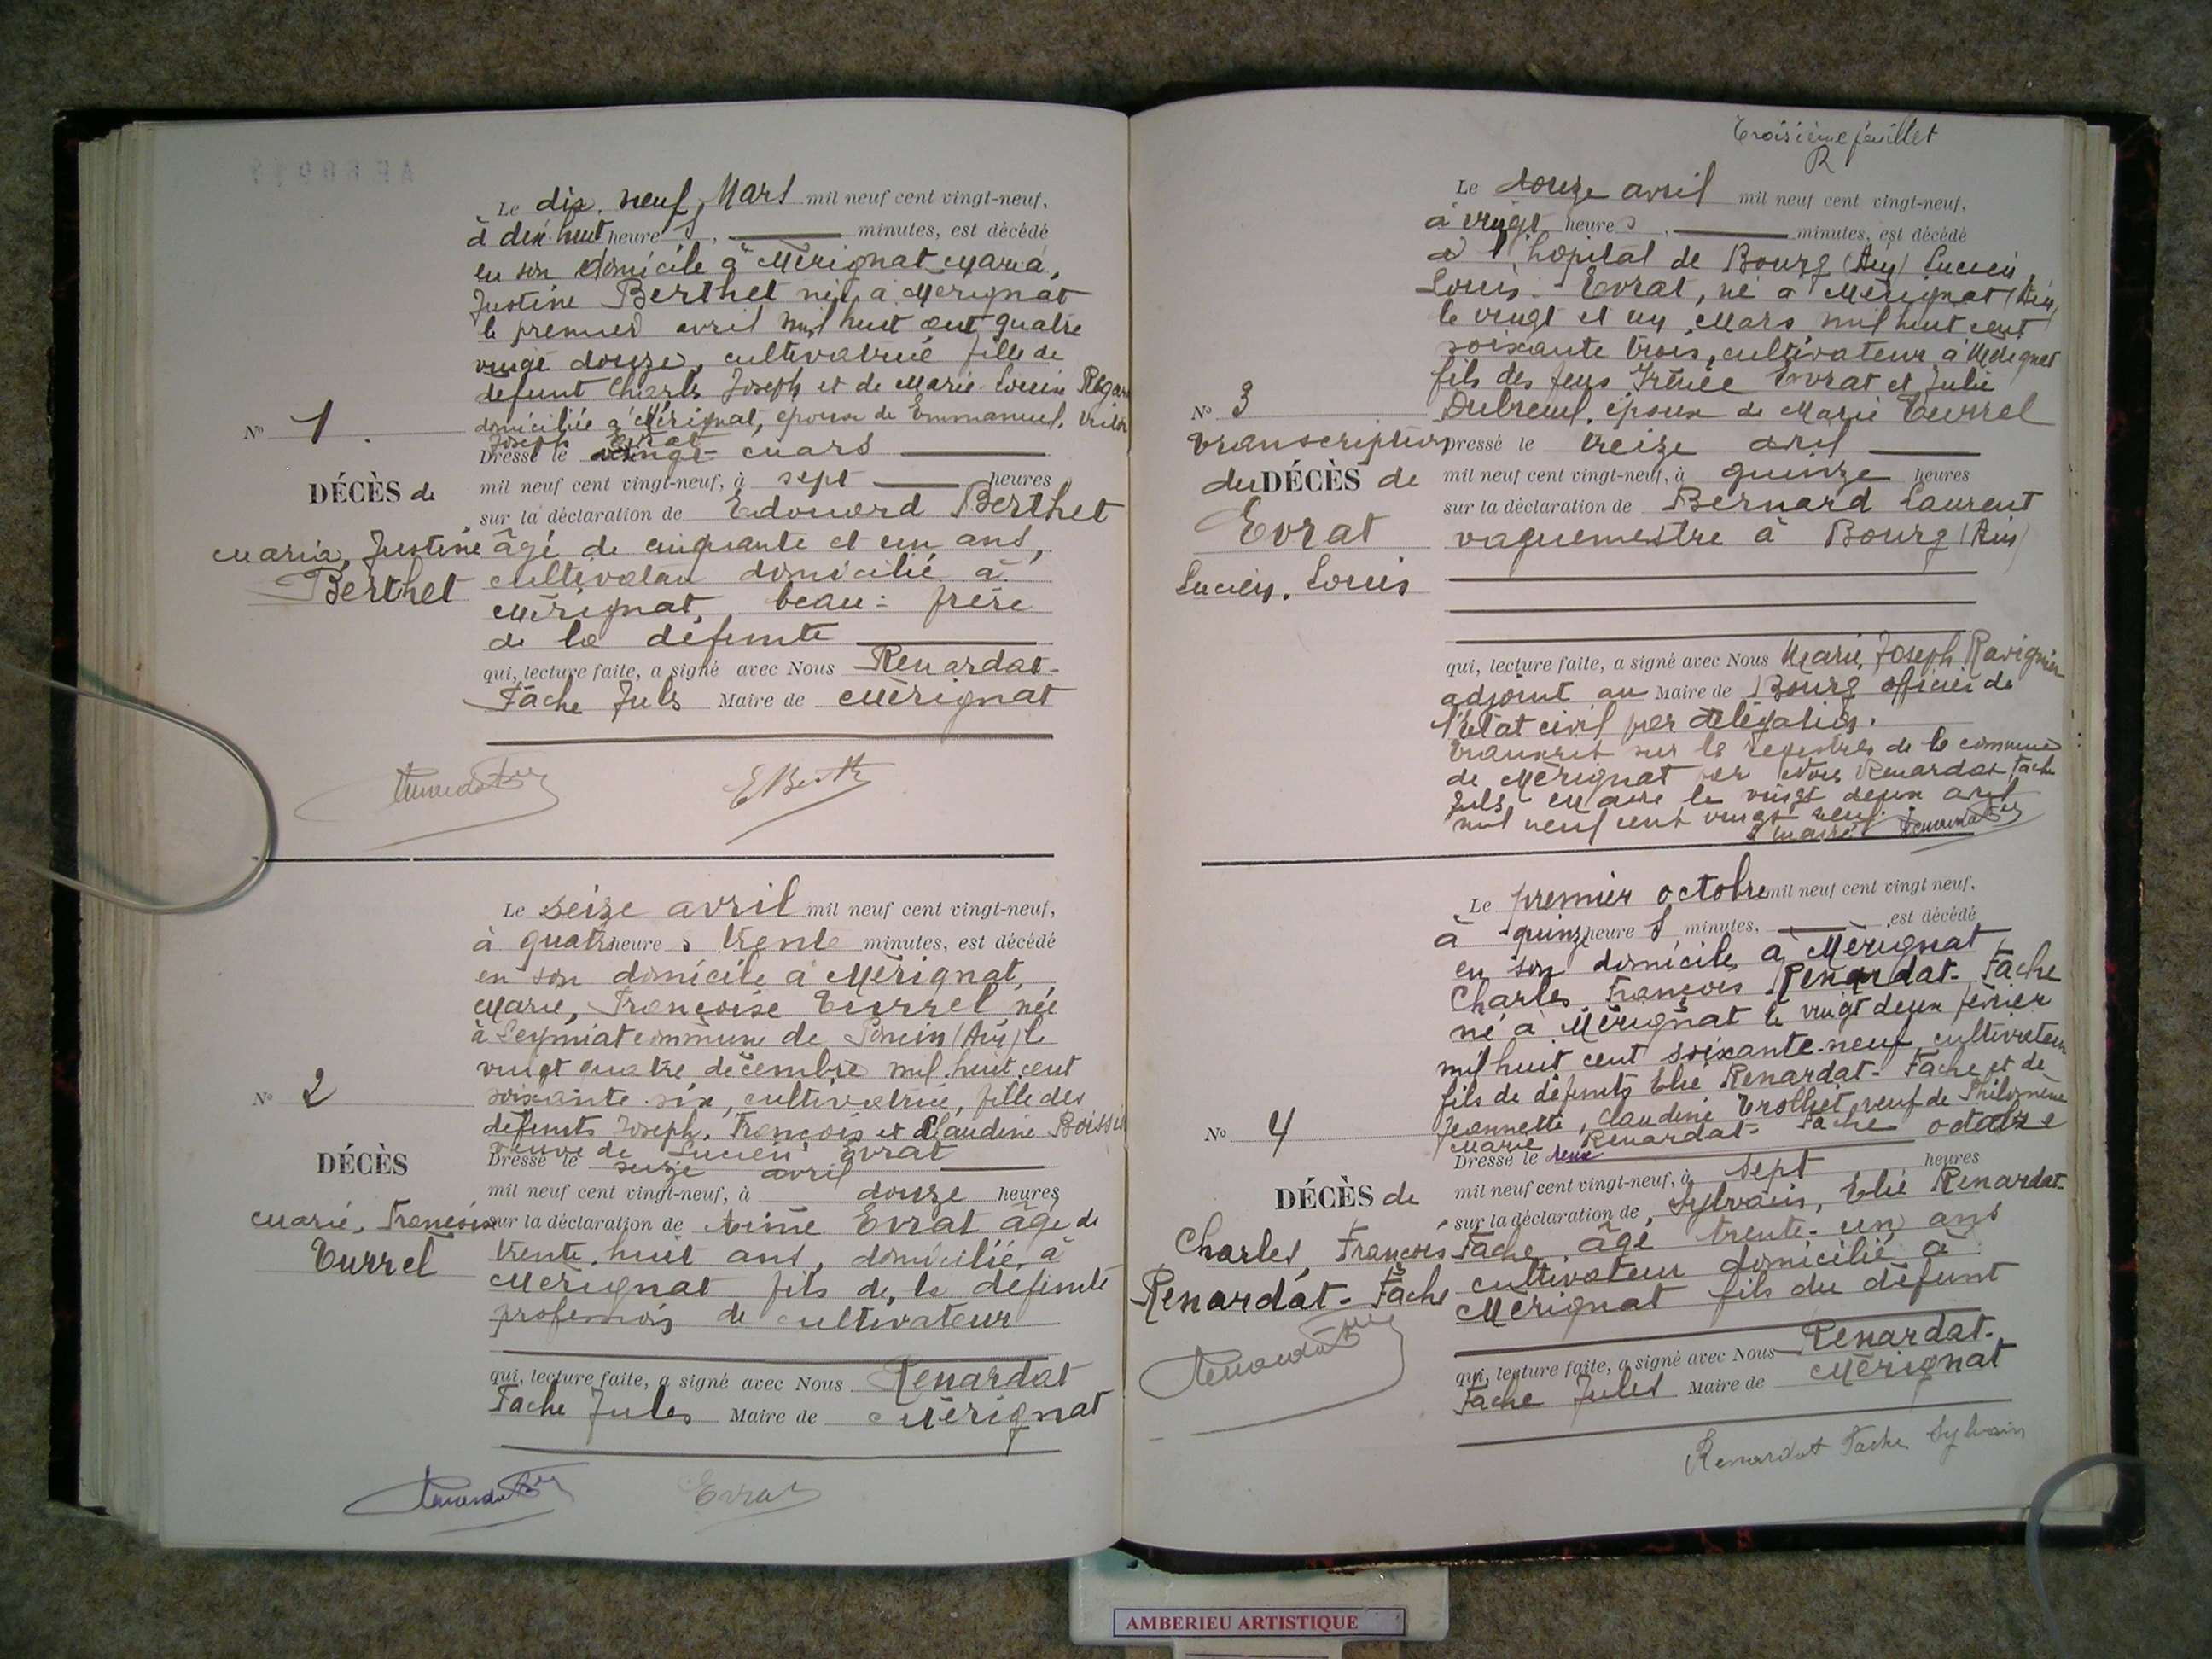 Le dix neuf Mars mil neuf cent vingt-neuf,
à dix huit heures, minutes, est décédé
en son domicile à Mérignat Maria,
Justine Berthet née à Merignat
le premier avril mil huit cent quatre
vingt douze, cultivatrice fille de
defunt Charles Joseph et de Marie Louise
domiciliée à Mérignat, epouse de Emmanuel,
Joseph Evrat
Dressé le vingt mars
mil neuf cent vingt-neuf, à sept heures
sur la déclaration de Edouard Berthet
âgé de cinquante et un ans,
cultivateur domicilié à
Mérignat, beau-frère
de la défunte
qui, lecture faite, a signé avec Nous Renardat-
Fache Juls Maire de Mérignat
No 1.
DÉCÈS de
Maria, Justine
Berthet
Le seize avril mil neuf cent vingt-neuf,
à quatre heures trente minutes, est décédé
en son domicile à Mérignat,
Marie, Françoise Turrel née
à Leymiat commune de Poncin (Ain) le
vingt quatre décembre mil huit cent
soixante six, cultivatrice, fille des
défunts Joseph, François et Claudine
veuve de Lucien Evrat
Dressé le seize avril
mil neuf cent vingt-neuf, à douze heures
sur la déclaration de Aimé Evrat âgé de
trente huit ans, domicilié à
Mérignat fils de la défunte
profession de cultivateur
qui, lecture faite, a signé avec Nous Renardat
Fache Jules Maire de Mérignat
No 2
DÉCÈS
Marie, Françoise
Turrel
Evrat
Troisième feuillet
R
Le douze avril mil neuf cent vingt-neuf,
à vingt heures, minutes, est décédé
à l'hopital de Bourg (Ain) Lucien,
Louis Evrat, né à Mérignat (Ain)
le vingt et un Mars mil huit cent
soixante trois, cultivateur à Mérignat
fils des feus Irénée Evrat et Julie
Dubreuil, époux de Marie Turrel
Dressé le treize avril
mil neuf cent vingt-neuf, à quinze heures
sur la déclaration de Bernard Laurent
vaguemestre à Bourg (Ain)
qui, lecture faite, a signé avec Nous Marie, Joseph Ravignier
adjoint au Maire de Bourg officier de
l'état civil par délégation.
Transcrit sur les registres de la commune
de Mérignat par Nous Renardat Fache
Juls, Maire le vingt deux avril
mil neuf cent vingt neuf.
Le Maire
No 3
transcription
du DÉCÈS de
Evrat
Lucien, Louis
Le premier octobre mil neuf cent vingt neuf,
à quinze heures minutes, est décédé
en son domicile à Mérignat
Charles François Renardat-Fache
né à Mérignat le vingt deux février
mil huit cent soixante-neuf cultivateur
fils de défunts Elie Renardat-Fache et de
Jeannette, Claudine Trollet, veuf de Philomène
Marie, Renardat-Fache
Dressé le deux octobre
mil neuf cent vingt-neuf, à sept heures
sur la déclaration de Sylvain, Elie Renardat-
Fache, âgé trente-un ans
cultivateur domicilié à
Mérignat fils du défunt
qui, lecture faite, a signé avec Nous Renardat-
Fache Jules Maire de Mérignat
No 4
DÉCÈS de
Charles, François
Renardat-Fache
Renardat Fache Sylvain
AMBERIEU ARTISTIQUE